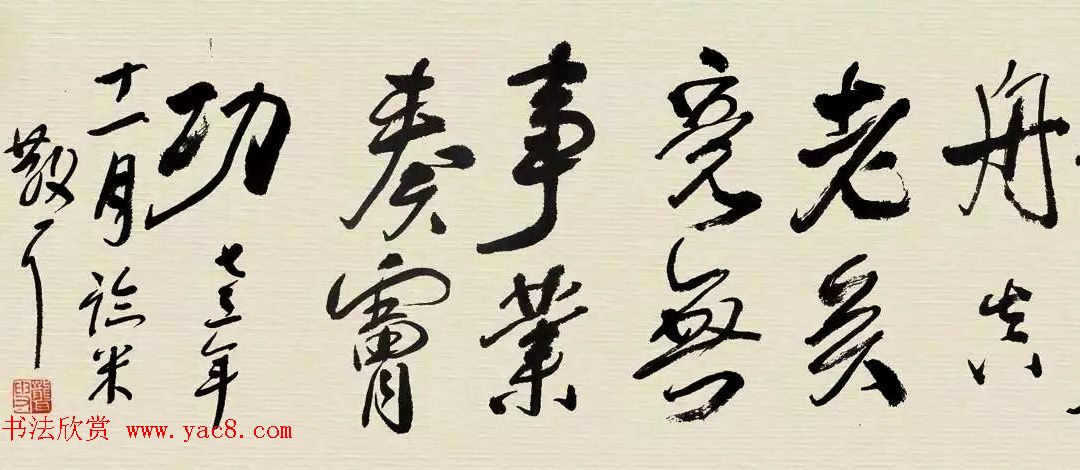 舟真
老矣
竟無
事業
奏膚
功 七三年
十一月臨米
书法欣赏 www.yac8.com